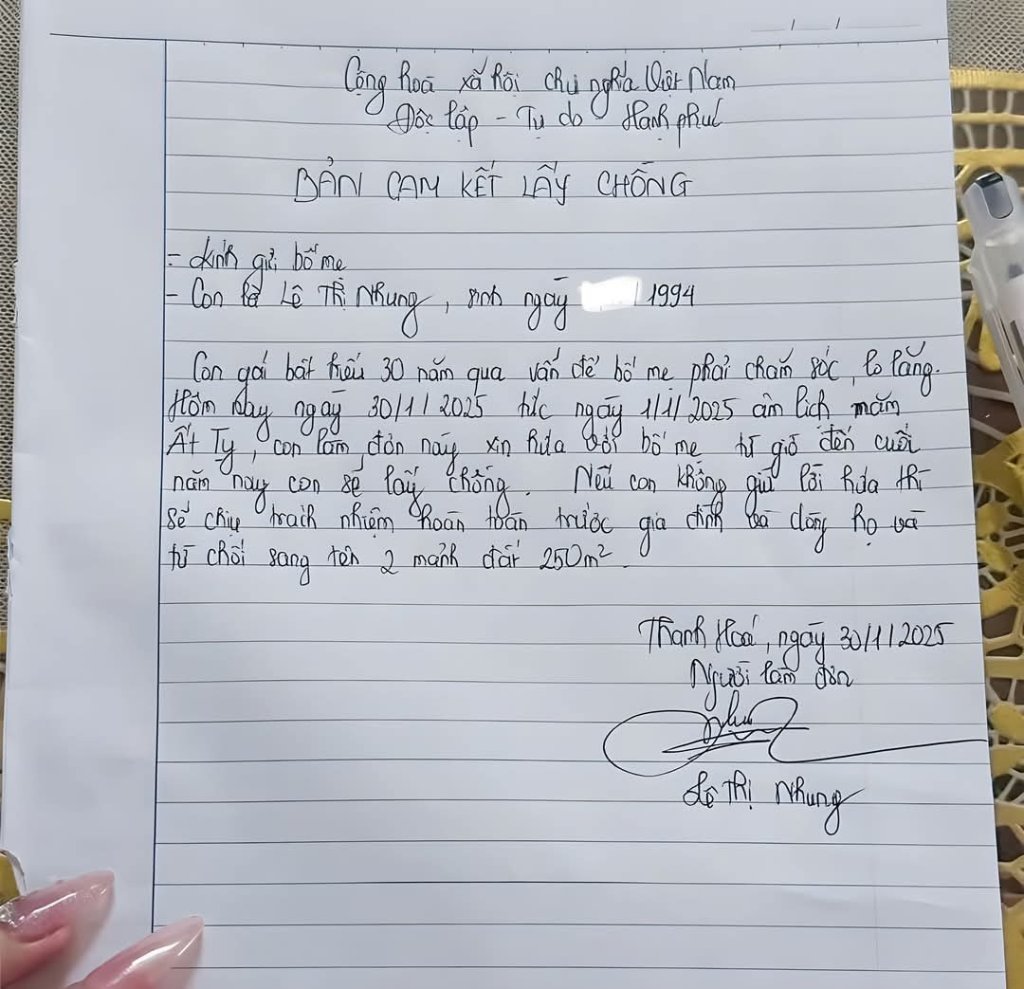 Cộng hoà xã hội chủ nghĩa Việt Nam
Độc lập - Tự do Hạnh phúc
BẢN CAM KẾT LẤY CHỒNG
- Kính gửi bố mẹ
- Con là Lê Thị Nhung, sinh ngày / 1994
Con gái bất hiếu 30 năm qua vẫn để bố mẹ phải chăm sóc, lo lắng.
Hôm nay ngày 30/1/2025 tức ngày 1/1/2025 âm lịch măm
Ất Tỵ, con làm đơn này xin hứa với bố mẹ từ giờ đến cuối
năm nay con sẽ lấy chồng. Nếu con không giữ lời hứa thì
sẽ chịu trách nhiệm hoàn toàn trước gia đình và dòng họ và
từ chối sang tên 2 mảnh đất 250m².
Thanh Hoá, ngày 30/1/2025
Người làm đơn
Nhung
Lê Thị Nhung